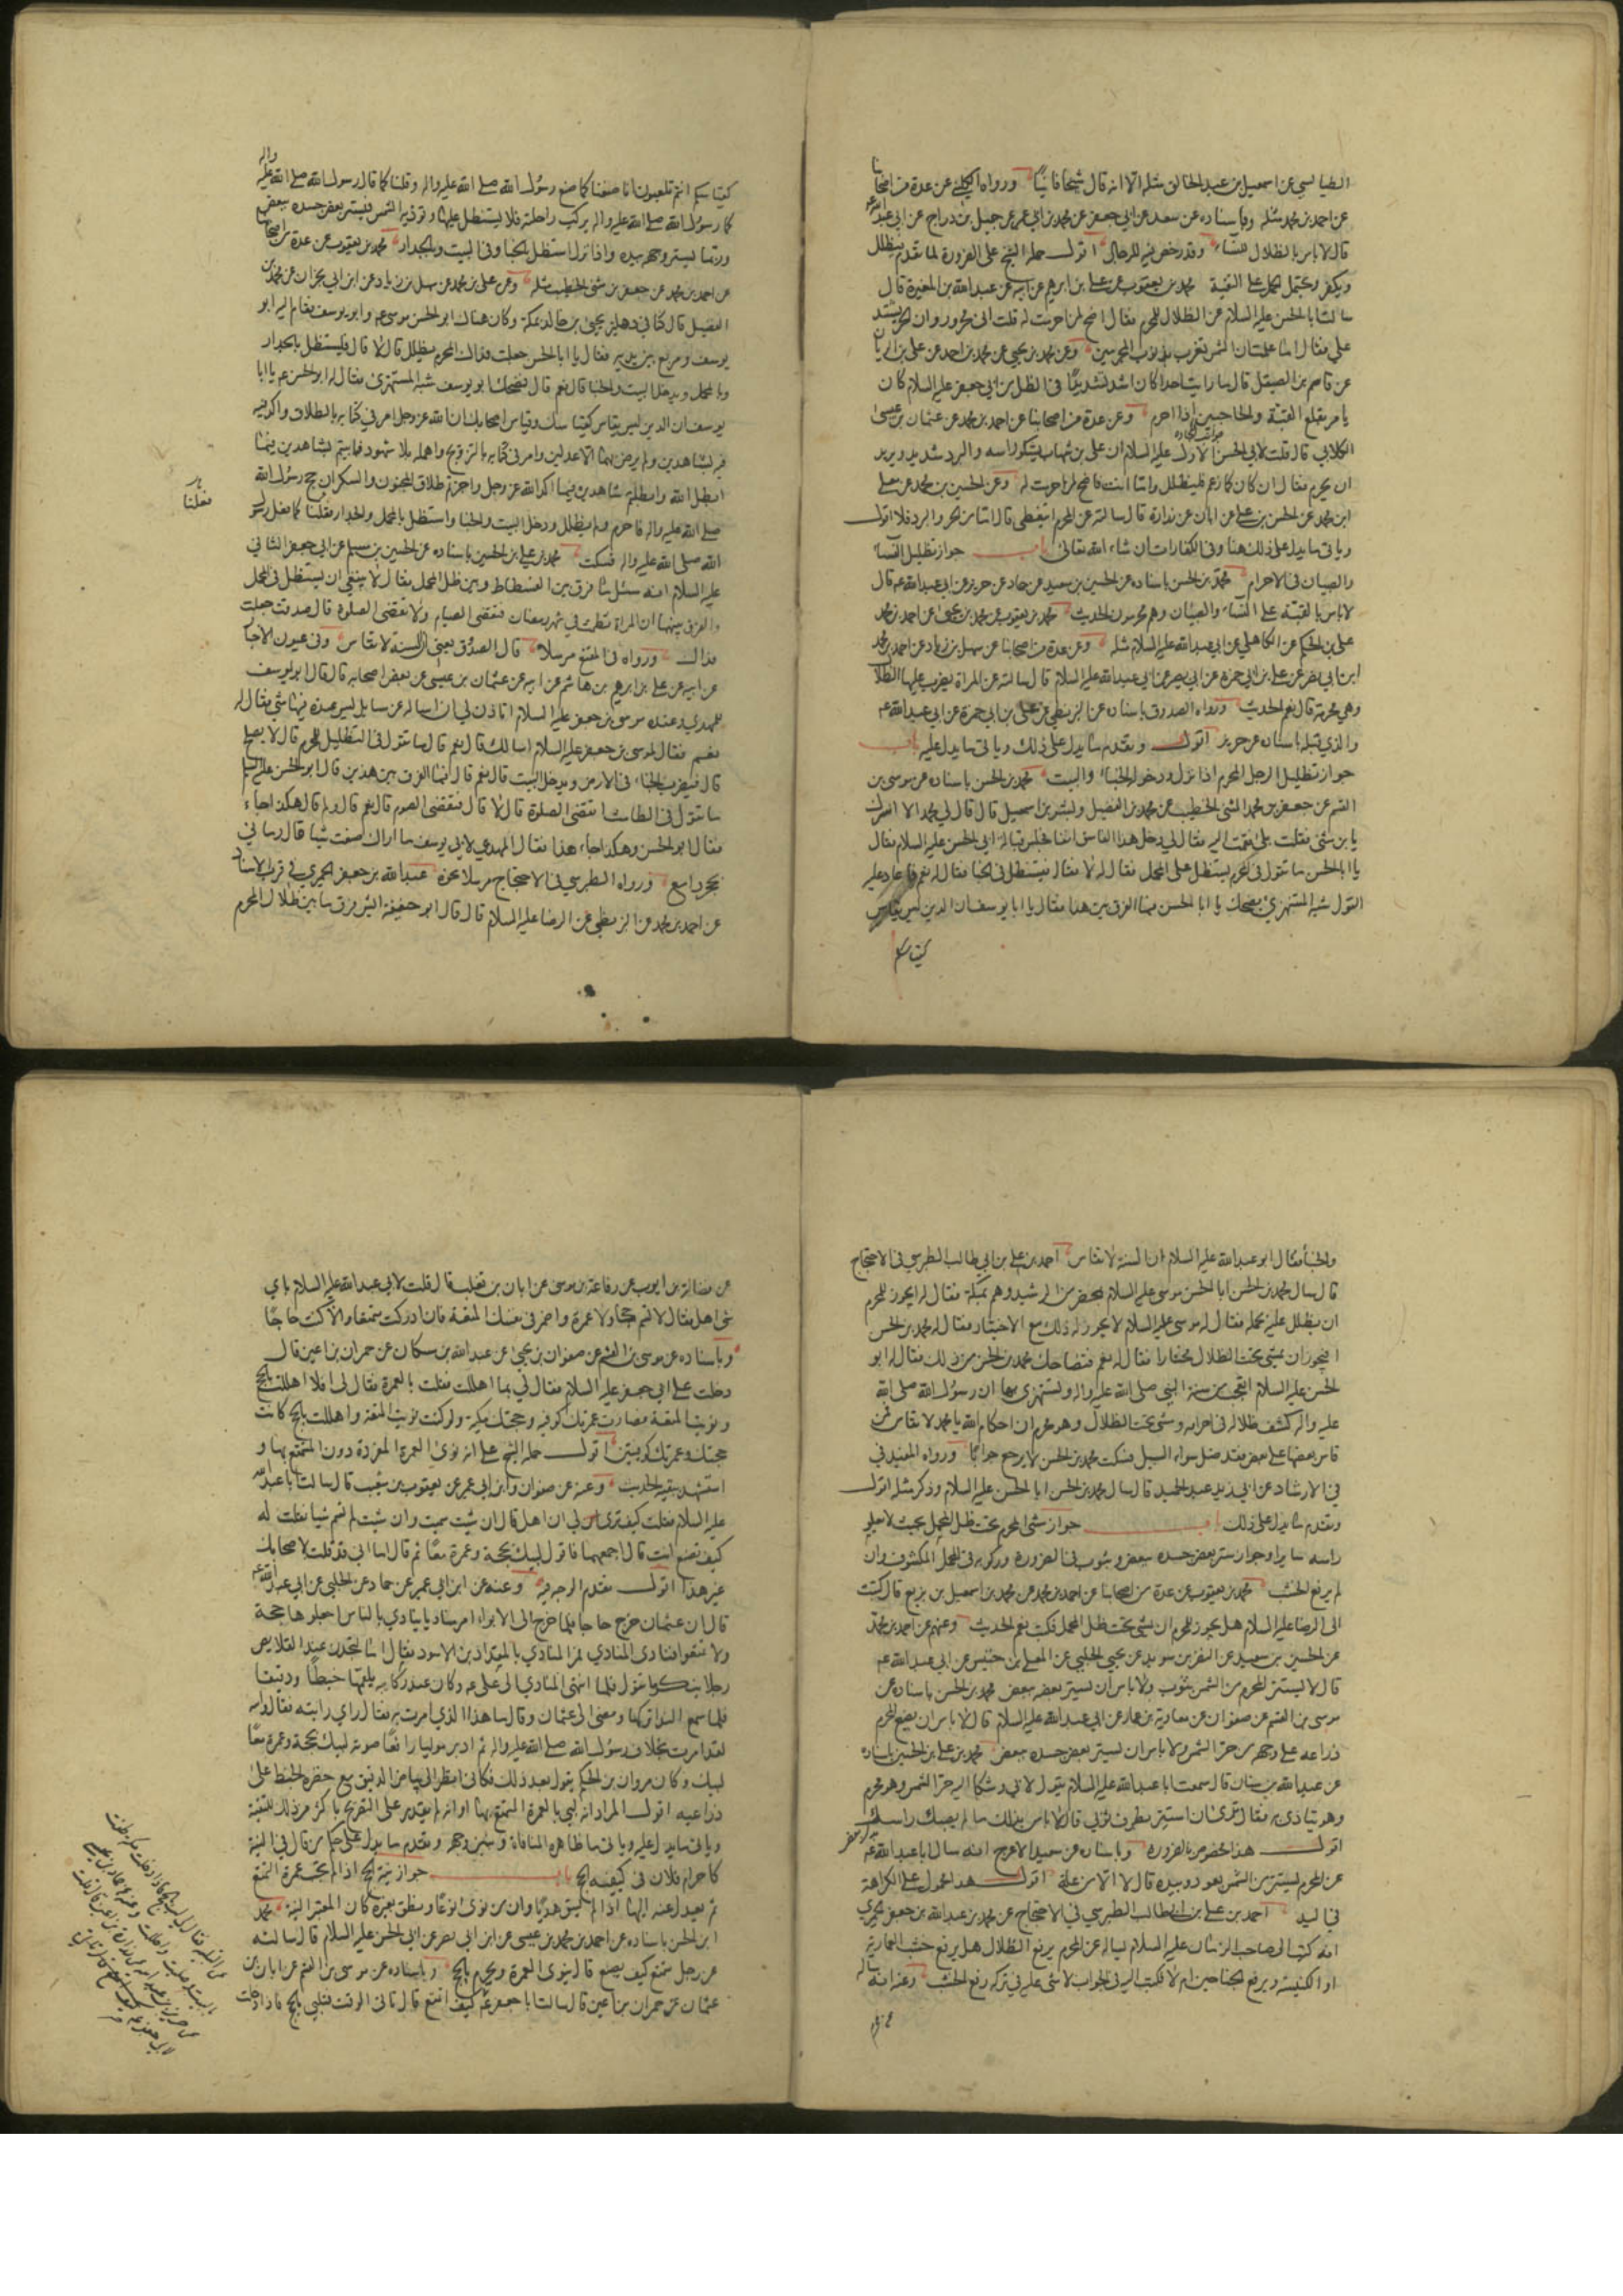 الطيالسي عن اسمعيل بن عبد الخالق مثله الا انه قال شيخا فانيا ورواه الكليني عن عدة من اصحابنا
عن احمد بن محمد مثله وباسناده عن سعد عن ابي جعفر عن محمد بن ابي عمير عن جميل بن دراج عن ابي عبد الله ع
قال لا باس بالظلال للنساء وقد رخص فيه للرجال اقول حمله الشيخ على الضرورة لما تقدم فيظلل
ويكفر ويحتمل الحمل على التقية محمد بن يعقوب عن علي بن ابرهيم عن ابيه عن عبد الله بن المغيرة قال
سالت ابا الحسن عليه السلام عن الظلال للمحرم فقال اضح لمن احرمت له قلت اني محرور وان الحر يشتد
علي فقال اما علمت ان الشمس تغرب بذنوب المجرمين وعن محمد بن يحيى عن محمد بن احمد عن علي بن الريان
عن قاسم بن الصيقل قال ما رايت احدا كان اشد تشديدا في الظل من ابي جعفر عليه السلام كان
يامر بقلع القبة والحاجبين اذا احرم وعن عدة من اصحابنا عن احمد بن محمد عن عثمان بن عيسى
الكلابي قال قلت لابي الحسن الاول عليه السلام ان علي بن شهاب يشكو راسه والبرد شديد ويريد
ان يحرم فقال ان كان كما زعم فليظلل واما انت فاضح لمن احرمت له وعن الحسين بن محمد عن معلى
ابن محمد عن الحسن بن علي عن ابان عن زرارة قال سالته عن المحرم ايتغطى قال اما من الحر والبرد فلا اقول
وياتي ما يدل على ذلك هنا وفي الكفارات ان شاء الله تعالى باب جواز تظليل النساء
والصبيان في الاحرام محمد بن الحسن باسناده عن الحسين بن سعيد عن حماد عن حريز عن ابي عبد الله ع قال
لا باس بالقبة على النساء والصبيان وهم محرمون الحديث محمد بن يعقوب عن محمد بن يحيى عن احمد بن محمد
علي بن الحكم عن الكاهلي عن ابي عبد الله عليه السلام مثله وعن عدة من اصحابنا عن سهل بن زياد عن احمد بن محمد
ابن ابي نصر عن علي بن ابي حمزة عن ابي بصير عن ابي عبد الله عليه السلام قال سالته عن المراة يضرب عليها الظلال
وهي محرمة قال نعم الحديث ورواه الصدوق باسناده عن البزنطي عن علي بن ابي حمزة عن ابي عبد الله ع
والذي قبله باسناده عن حريز اقول وتقدم ما يدل على ذلك وياتي ما يدل عليه باب
جواز تظليل الرجل المحرم اذا نزل ودخوله الخباء والبيت محمد بن الحسن باسناده عن موسى بن
القسم عن جعفر بن محمد المثنى الخطيب عن محمد بن الفضيل وبشر بن اسمعيل قال قال لي محمد الا اسرك
يا بن مثنى فقلت بلى فقمت اليه فقال لي دخل هذا الفاسق انفا فجلس قبالة ابي الحسن عليه السلام فقال
يا ابا الحسن ما تقول في المحرم يستظل على المحمل فقال له لا فقال فيستظل في الخبا فقال له نعم فاعاد عليه
القول شبه المستهزئ يضحك يا ابا الحسن فما الفرق بين هذا فقال يا ابا يوسف ان الدين ليس يقاس
كقياسكم
كقياسكم انتم تلعبون انا صنعنا كما صنع رسول الله صلى الله عليه واله وقلنا كما قال رسول الله صلى الله عليه واله
كان رسول الله صلى الله عليه واله يركب راحلته فلا يستظل عليها وتوذيه الشمس فيستر بعض جسده ببعض
وربما يستر وجهه بيده واذا نزل استظل بالخبا وفي البيت وبالجدار محمد بن يعقوب عن عدة من اصحابنا
عن احمد بن محمد عن جعفر بن مثنى الخطيب مثله وعن علي بن محمد عن سهل بن زياد عن ابن ابي نجران عن محمد بن
الفضيل قال كنا في دهليز يحيى بن خالد بمكة وكان هناك ابو الحسن موسى ع وابو يوسف فقام اليه ابو
يوسف وتربع بين يديه فقال يا ابا الحسن جعلت فداك المحرم يظلل قال لا قال فيستظل بالجدار
والمحمل ويدخل البيت والخبا قال نعم قال فضحك ابو يوسف شبه المستهزئ فقال له ابو الحسن ع يا ابا
يوسف ان الدين ليس يقاس كقياسك وقياس اصحابك ان الله عز وجل امر في كتابه بالطلاق واكد فيه
فيه بشاهدين ولم يرض بهما الا عدلين وامر في كتابه بالتزويج واهمله بلا شهود فاتيتم بشاهدين فيما
ابطل الله وابطلتم شاهدين فيما اكد الله عز وجل واجزتم طلاق المجنون والسكران حج رسول الله
صلى الله عليه واله فاحرم ولم يظلل ودخل البيت والخبا واستظل بالمحمل والجدار فقلنا كما فعل رسول
فعلنا
الله صلى الله عليه واله فسكت محمد بن علي بن الحسين باسناده عن الحسين بن مسلم عن ابي جعفر الثاني
عليه السلام انه سئل ما فرق بين الفسطاط وبين ظل المحمل فقال لا ينبغي ان يستظل في المحمل
والفرق بينهما ان المراة تطمث في شهر رمضان فتقضي الصيام ولا تقضي الصلوة قال صدقت جعلت
فداك ورواه في المقنع مرسلا قال الصدوق يعني ان السنة لا تقاس وفي عيون الاخبار
عن ابيه عن علي بن ابرهيم بن هاشم عن ابيه عن عثمان بن عيسى عن بعض اصحابه قال قال ابو يوسف
للمهدي وعنده موسى بن جعفر عليه السلام اتاذن لي ان اساله عن مسايل ليس عنده فيها شي فقال له
نعم فقال لموسى بن جعفر عليه السلام اسالك قال نعم قال ما تقول في التظليل للمحرم قال لا يصلح
قال فيضرب الخباء في الارض ويدخل البيت قال نعم قال فما الفرق بين هذين قال ابو الحسن عليه السلام
ما تقول في الطامث اتقضي الصلوة قال لا قال فتقضي الصوم قال نعم قال ولم قال هكذا جاء
فقال ابو الحسن وهكذا جاء هذا فقال المهدي لابي يوسف ما اراك صنعت شيا قال رماني
بحجر دامغ ورواه الطبرسي في الاحتجاج مرسلا نحوه عبد الله بن جعفر الحميري في قرب الاسناد
عن احمد بن محمد عن البزنطي عن الرضا عليه السلام قال قال ابو حنيفة ايش فرق ما بين ظلال المحرم
والخبا فقال ابو عبد الله عليه السلام ان السنة لا تقاس احمد بن علي بن ابي طالب الطبرسي في الاحتجاج
قال سال محمد بن الحسن ابا الحسن موسى عليه السلام بمحضر من الرشيد وهم بمكة فقال له ايجوز للمحرم
ان يظلل عليه محمله فقال له موسى عليه السلام لا يجوز له ذلك مع الاختيار فقال له محمد بن الحسن
افيجوز ان يمشي تحت الظلال مختارا فقال له نعم فتضاحك محمد بن الحسن من ذلك فقال له ابو
الحسن عليه السلام اتعجب من سنة النبي صلى الله عليه واله وتستهزئ بها ان رسول الله صلى الله
عليه واله كشف ظلاله في احرامه ومشى تحت الظلال وهو محرم ان احكام الله يا محمد لا تقاس فمن
قاس بعضها على بعض فقد ضل سواء السبيل فسكت محمد بن الحسن لا يرجع جوابا ورواه المفيد في
في الارشاد عن ابي زيد عبد الحميد قال سال محمد بن الحسن ابا الحسن عليه السلام وذكر مثله اقول
وتقدم ما يدل على ذلك باب جواز مشي المحرم تحت ظل المحمل بحيث لا يعلو
راسه سايرا وجواز ستر بعض جسده ببعض وبثوب في الضرورة وركوبه في المحمل المكشوف وان
لم يرفع الخشب محمد بن يعقوب عن عدة من اصحابنا عن احمد بن محمد عن محمد بن اسمعيل بن بزيع قال كتبت
الى الرضا عليه السلام هل يجوز للمحرم ان يمشي تحت ظل المحمل فكتب نعم الحديث وعنهم عن احمد بن محمد
عن الحسين بن سعيد عن النضر بن سويد عن يحيى الحلبي عن المعلى بن خنيس عن ابي عبد الله ع
قال لا يستتر المحرم من الشمس بثوب ولا باس ان يستر بعضه ببعض محمد بن الحسن باسناده عن
موسى بن القسم عن صفوان عن معاوية بن عمار عن ابي عبد الله عليه السلام قال لا باس ان يضع المحرم
ذراعه على وجهه من حر الشمس ولا باس ان يستر بعض جسده ببعض محمد بن علي بن الحسين باسناده
عن عبد الله بن سنان قال سمعت ابا عبد الله عليه السلام يقول لابي وشكا اليه حر الشمس وهو محرم
وهو يتاذى به فقال ترى ان استتر بطرف ثوبي قال لا باس بذلك ما لم يصبك راسك
اقول هذا مخصوص بالضرورة وباسناده عن سعيد الاعرج انه سال ابا عبد الله ع
عن المحرم يستتر من الشمس بعود وبيده قال لا الا من علة اقول هذا محمول على الكراهة
في اليد احمد بن علي بن ابي طالب الطبرسي في الاحتجاج عن محمد بن عبد الله بن جعفر الحميري
انه كتب الى صاحب الزمان عليه السلام يساله عن المحرم يرفع الظلال هل يرفع خشب العمارية
او الكنيسة ويرفع الجناحين ام لا فكتب اليه في الجواب لا شي عليه في تركه رفع الخشب وعنه انه ساله
عن فضالة بن ايوب عن رفاعة بن موسى عن ابان بن تغلب قال قلت لابي عبد الله عليه السلام باي
شي اهل فقال لا تسم حجا ولا عمرة واضمر في نفسك المتعة فان ادركت متمتعا والا كنت حاجا
وباسناده عن موسى بن القسم عن صفوان بن يحيى عن عبد الله بن مسكان عن حمران بن اعين قال
دخلت على ابي جعفر عليه السلام فقال لي بما اهللت فقلت بالعمرة فقال لي افلا اهللت بالحج
ونويت المتعة فصارت عمرتك كوفية وحجتك مكية ولو كنت نويت المتعة واهللت بالحج كانت
حجتك وعمرتك كوفيتين اقول حمله الشيخ على انه نوى العمرة المفردة دون المتمتع بها و
استشهد ببقية الحديث وعنه عن صفوان وابن ابي عمير عن يعقوب بن شعيب قال سالت ابا عبد الله
عليه السلام فقلت كيف ترى لي ان اهل قال ان شيت سميت وان شيت لم تسم شيا فقلت له
كيف تصنع انت قال اجمعهما فاقول لبيك بحجة وعمرة معا ثم قال اما اني قد قلت لاصحابك
غير هذا اقول تقدم الوجه فيه وعنه عن ابن ابي عمير عن حماد عن الحلبي عن ابي عبد الله ع
قال ان عثمان خرج حاجا فلما خرج الى الابواء امر مناديا ينادي بالناس اجعلوها حجة
ولا تمتعوا فنادى المنادي فمر المنادي بالمقداد بن الاسود فقال اما لتجدن عند القلايص
رجلا ينكر ما تقول فلما انتهى المنادي الى علي ع وكان عند ركابه يلقمها خبطا ودقيقا
فلما سمع النداء تركها ومضى الى عثمان وقال ما هذا الذي امرت به فقال راي رايته فقال والله
لقد امرت بخلاف رسول الله صلى الله عليه واله ثم ادبر موليا رافعا صوته لبيك بحجة وعمرة معا
لبيك وكان مروان بن الحكم يقول بعد ذلك فكاني انظر الى بياض الدقيق مع خضرة الخبط على
ذراعيه اقول المراد انه لبى بالعمرة المتمتع بها او انه لم يقدر على التصريح باكثر من ذلك للتقية
وياتي ما يدل عليه وياتي ما ظاهره المنافاة ونبين وجهه وتقدم ما يدل على حكم من قال في النية
كاحرام فلان في كيفية الحج باب جواز نية الحج اذا لم تجب عمرة التمتع
ثم يعدل عنه اليها اذا لم يسق هديا وان من نوى نوعا ونطق بغيره كان المعتبر النية محمد
ابن الحسن باسناده عن احمد بن محمد بن عيسى عن ابن ابي نصر عن ابي الحسن عليه السلام قال سالته
عن رجل متمتع كيف يصنع قال ينوي العمرة ويحرم بالحج وباسناده عن موسى بن القسم عن ابان بن
عثمان عن حمران بن اعين قال سالت ابا جعفر ع كيف اتمتع قال تاتي الوقت فتلبي بالحج فاذا دخلت